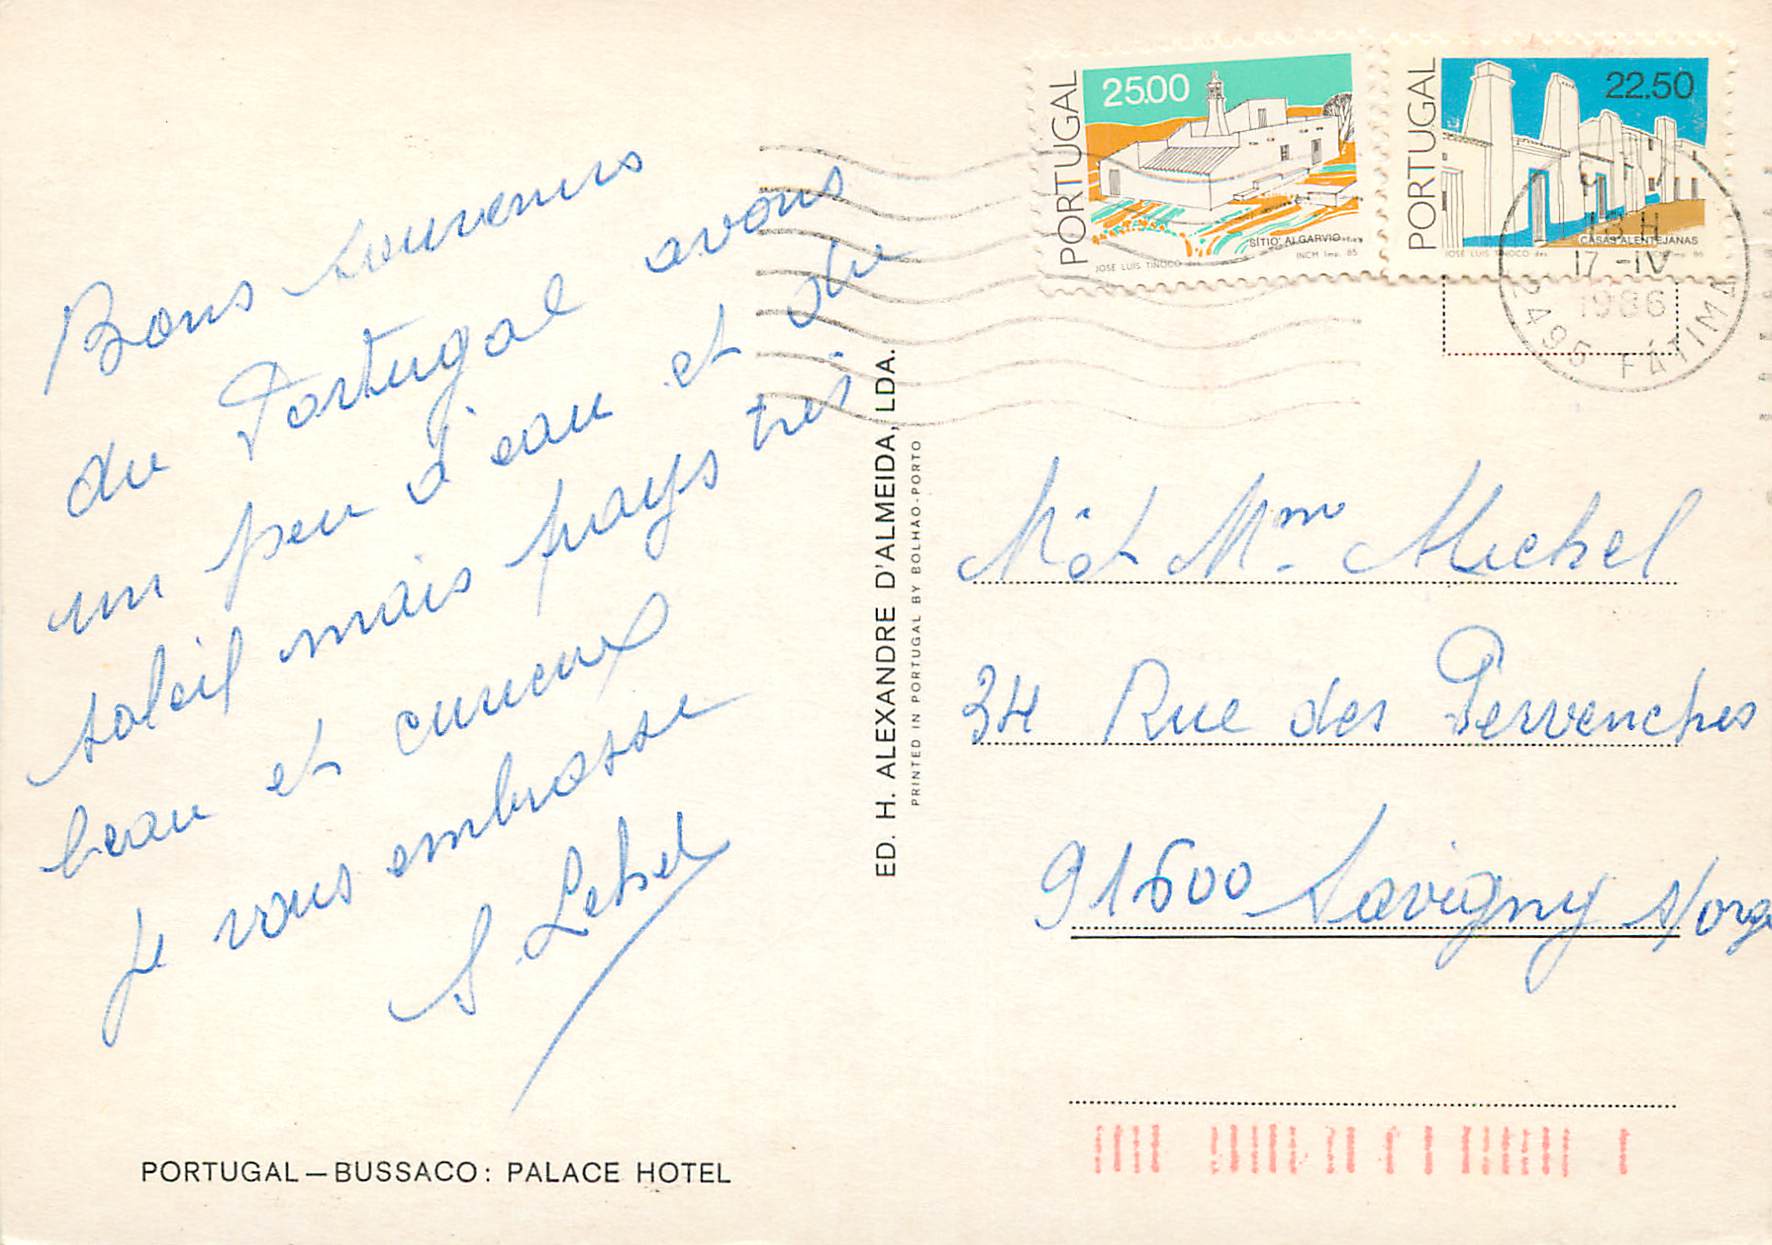 Bons souvenirs
du Portugal avons
un peu d'eau et du
soleil mais pays très
beau et curieux
je vous embrasse
S. Lebel
PORTUGAL — BUSSACO: PALACE HOTEL
ED. H. ALEXANDRE D'ALMEIDA, LDA.
PRINTED IN PORTUGAL BY BOLHÃO-PORTO
PORTUGAL
25.00
SÍTIO ALGARVIO
JOSÉ LUIS TINOCO des
INCM Imp. 85
PORTUGAL
22.50
CASAS ALENTEJANAS
JOSÉ LUIS TINOCO des
INCM Imp. 86
18 H
17 -IV
1986
2495 FÁTIMA
M. et Mme Michel
34 Rue des Pervenches
91600 Savigny s/orge